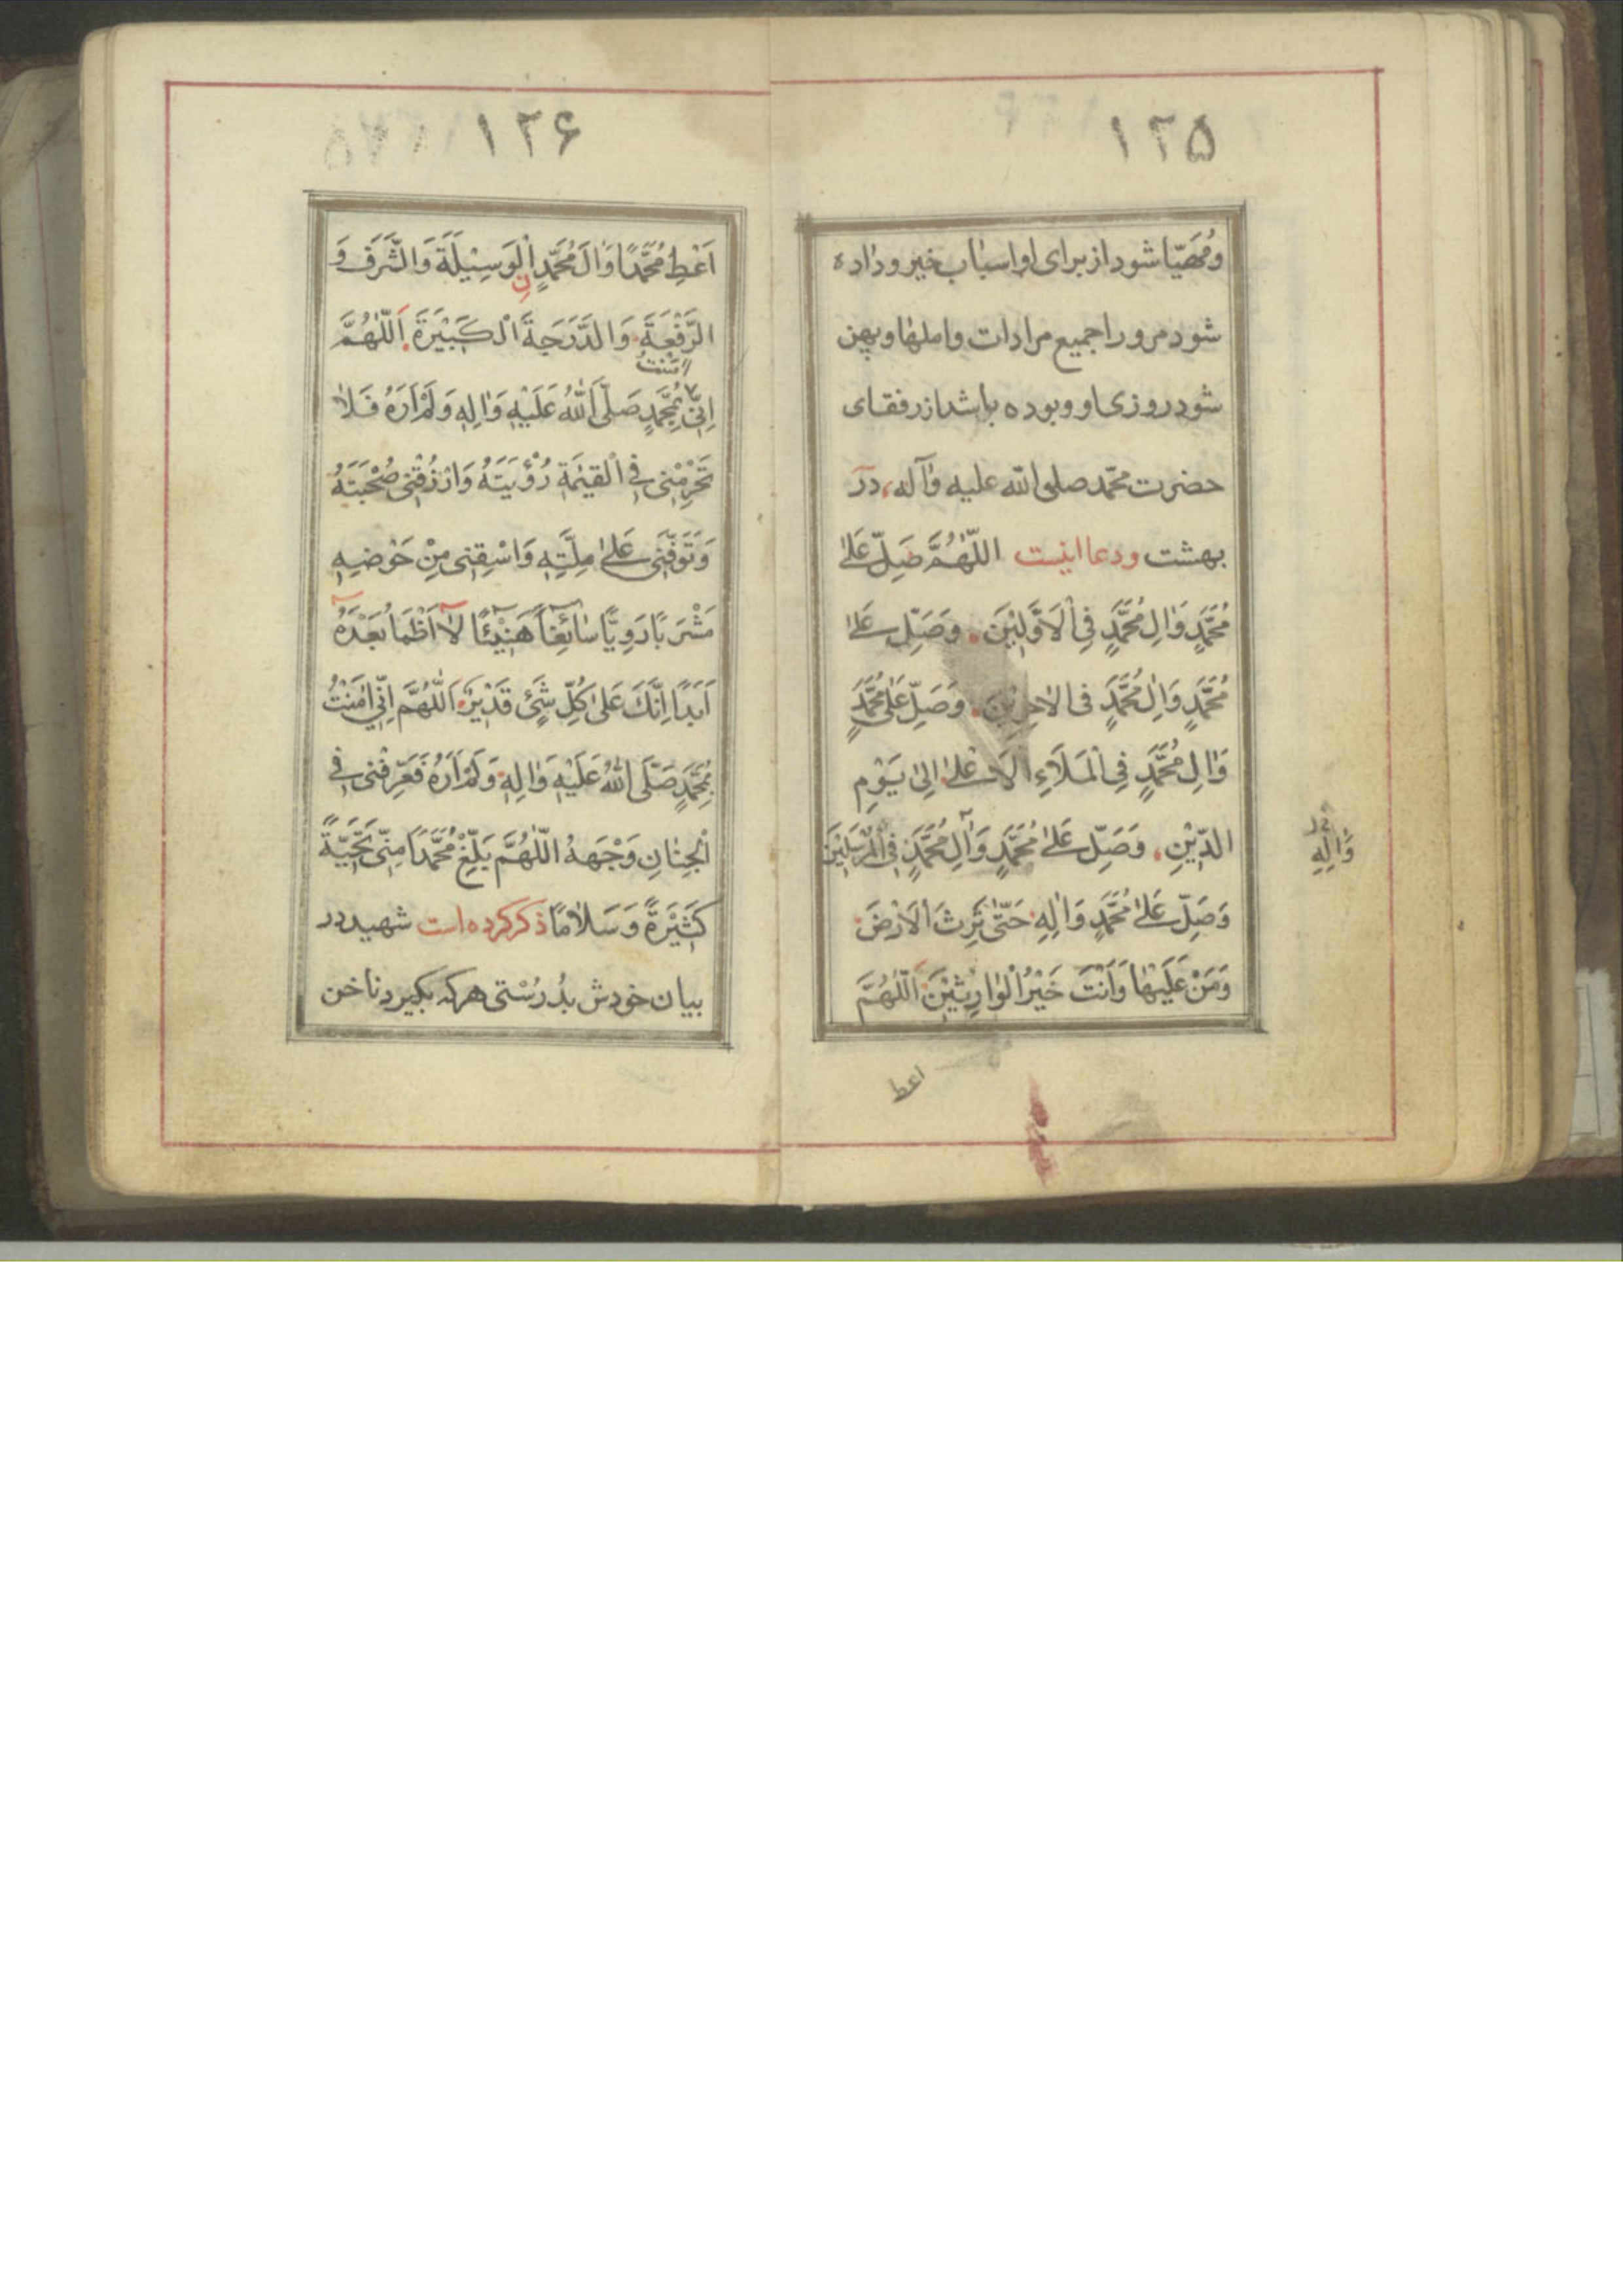 ۱۲۵
ومُهَیّا شود از برای او اسباب خیر و داده
شود مرورا جمیع مرادات و املها و پهن
شود روزی او و بوده باشد از رفقای
حضرت محمّد صلی الله علیه وآله، در
بهشت ودعا اینست اللّهُمَّ صَلِّ عَلیٰ
مُحَمَّدٍ وَاٰلِ مُحَمَّدٍ فِی الْاَوَّلِیْنَ. وَصَلِّ عَلیٰ
مُحَمَّدٍ وَاٰلِ مُحَمَّدٍ فی الاٰخِرِیْنَ. وَصَلِّ عَلیٰ مُحَمَّدٍ
وَاٰلِ مُحَمَّدٍ فِی الْمَلَاَءِ الْاَعْلیٰ اِلیٰ یَوْمِ
الدِّیْنِ. وَصَلِّ عَلیٰ مُحَمَّدٍ وَآلِ مُحَمَّدٍ فِی الْمُرْسَلِیْنَ
وَاٰلِهِ
وَصَلِّ عَلیٰ مُحَمَّدٍ وَاٰلِهِ حَتّیٰ تَرِثَ الْاَرْضَ
وَمَنْ عَلَیْهٰا وَاَنْتَ خَیْرُ الْوٰارِثِیْنَ اَللّٰهُمَّ
اعط
۱۲۶
اَعْطِ مُحَمَّدًا وَاٰلَ مُحَمَّدٍ نِ الْوَسِیْلَةَ وَالشَّرَفَ وَ
الرِّفْعَةَ. وَالدَّرَجَةَ الْکَبِیْرَةَ. اَللّٰهُمَّ
اٰمَنْتُ
اِنِّی بِمُحَمَّدٍ صَلَّی اللّٰهُ عَلَیْهِ وَاٰلِهِ وَلَمْ اَرَهُ فَلاٰ
تَحْرِمْنِی فِی الْقِیٰمَةِ رُؤْیَتَهُ وَارْزُقْنِی صُحْبَتَهُ
وَتَوَفَّنِی عَلیٰ مِلَّتِهِ وَاسْقِنِی مِنْ حَوْضِهِ
مَشْرَبًا رَوِیًّا سٰائِغًا هَنِیْئًا لاٰ اَظْمَاُ بَعْدَهُ
اَبَدًا اِنَّکَ عَلیٰ کُلِّ شَیْئٍ قَدِیْرٌ اَللّٰهُمَّ اِنِّی اٰمَنْتُ
بِمُحَمَّدٍ صَلَّی اللّٰهُ عَلَیْهِ وَاٰلِهِ وَلَمْ اَرَهُ فَعَرِّفْنِی فِی
الْجِنٰانِ وَجْهَهُ اللّٰهُمَّ بَلِّغْ مُحَمَّدًا مِنِّی تَحِیَّةً
کَثِیْرَةً وَسَلاٰمًا ذکر کرده است شهید در
بیان خودش بدُرُسْتی هرکه بکیرد ناخن